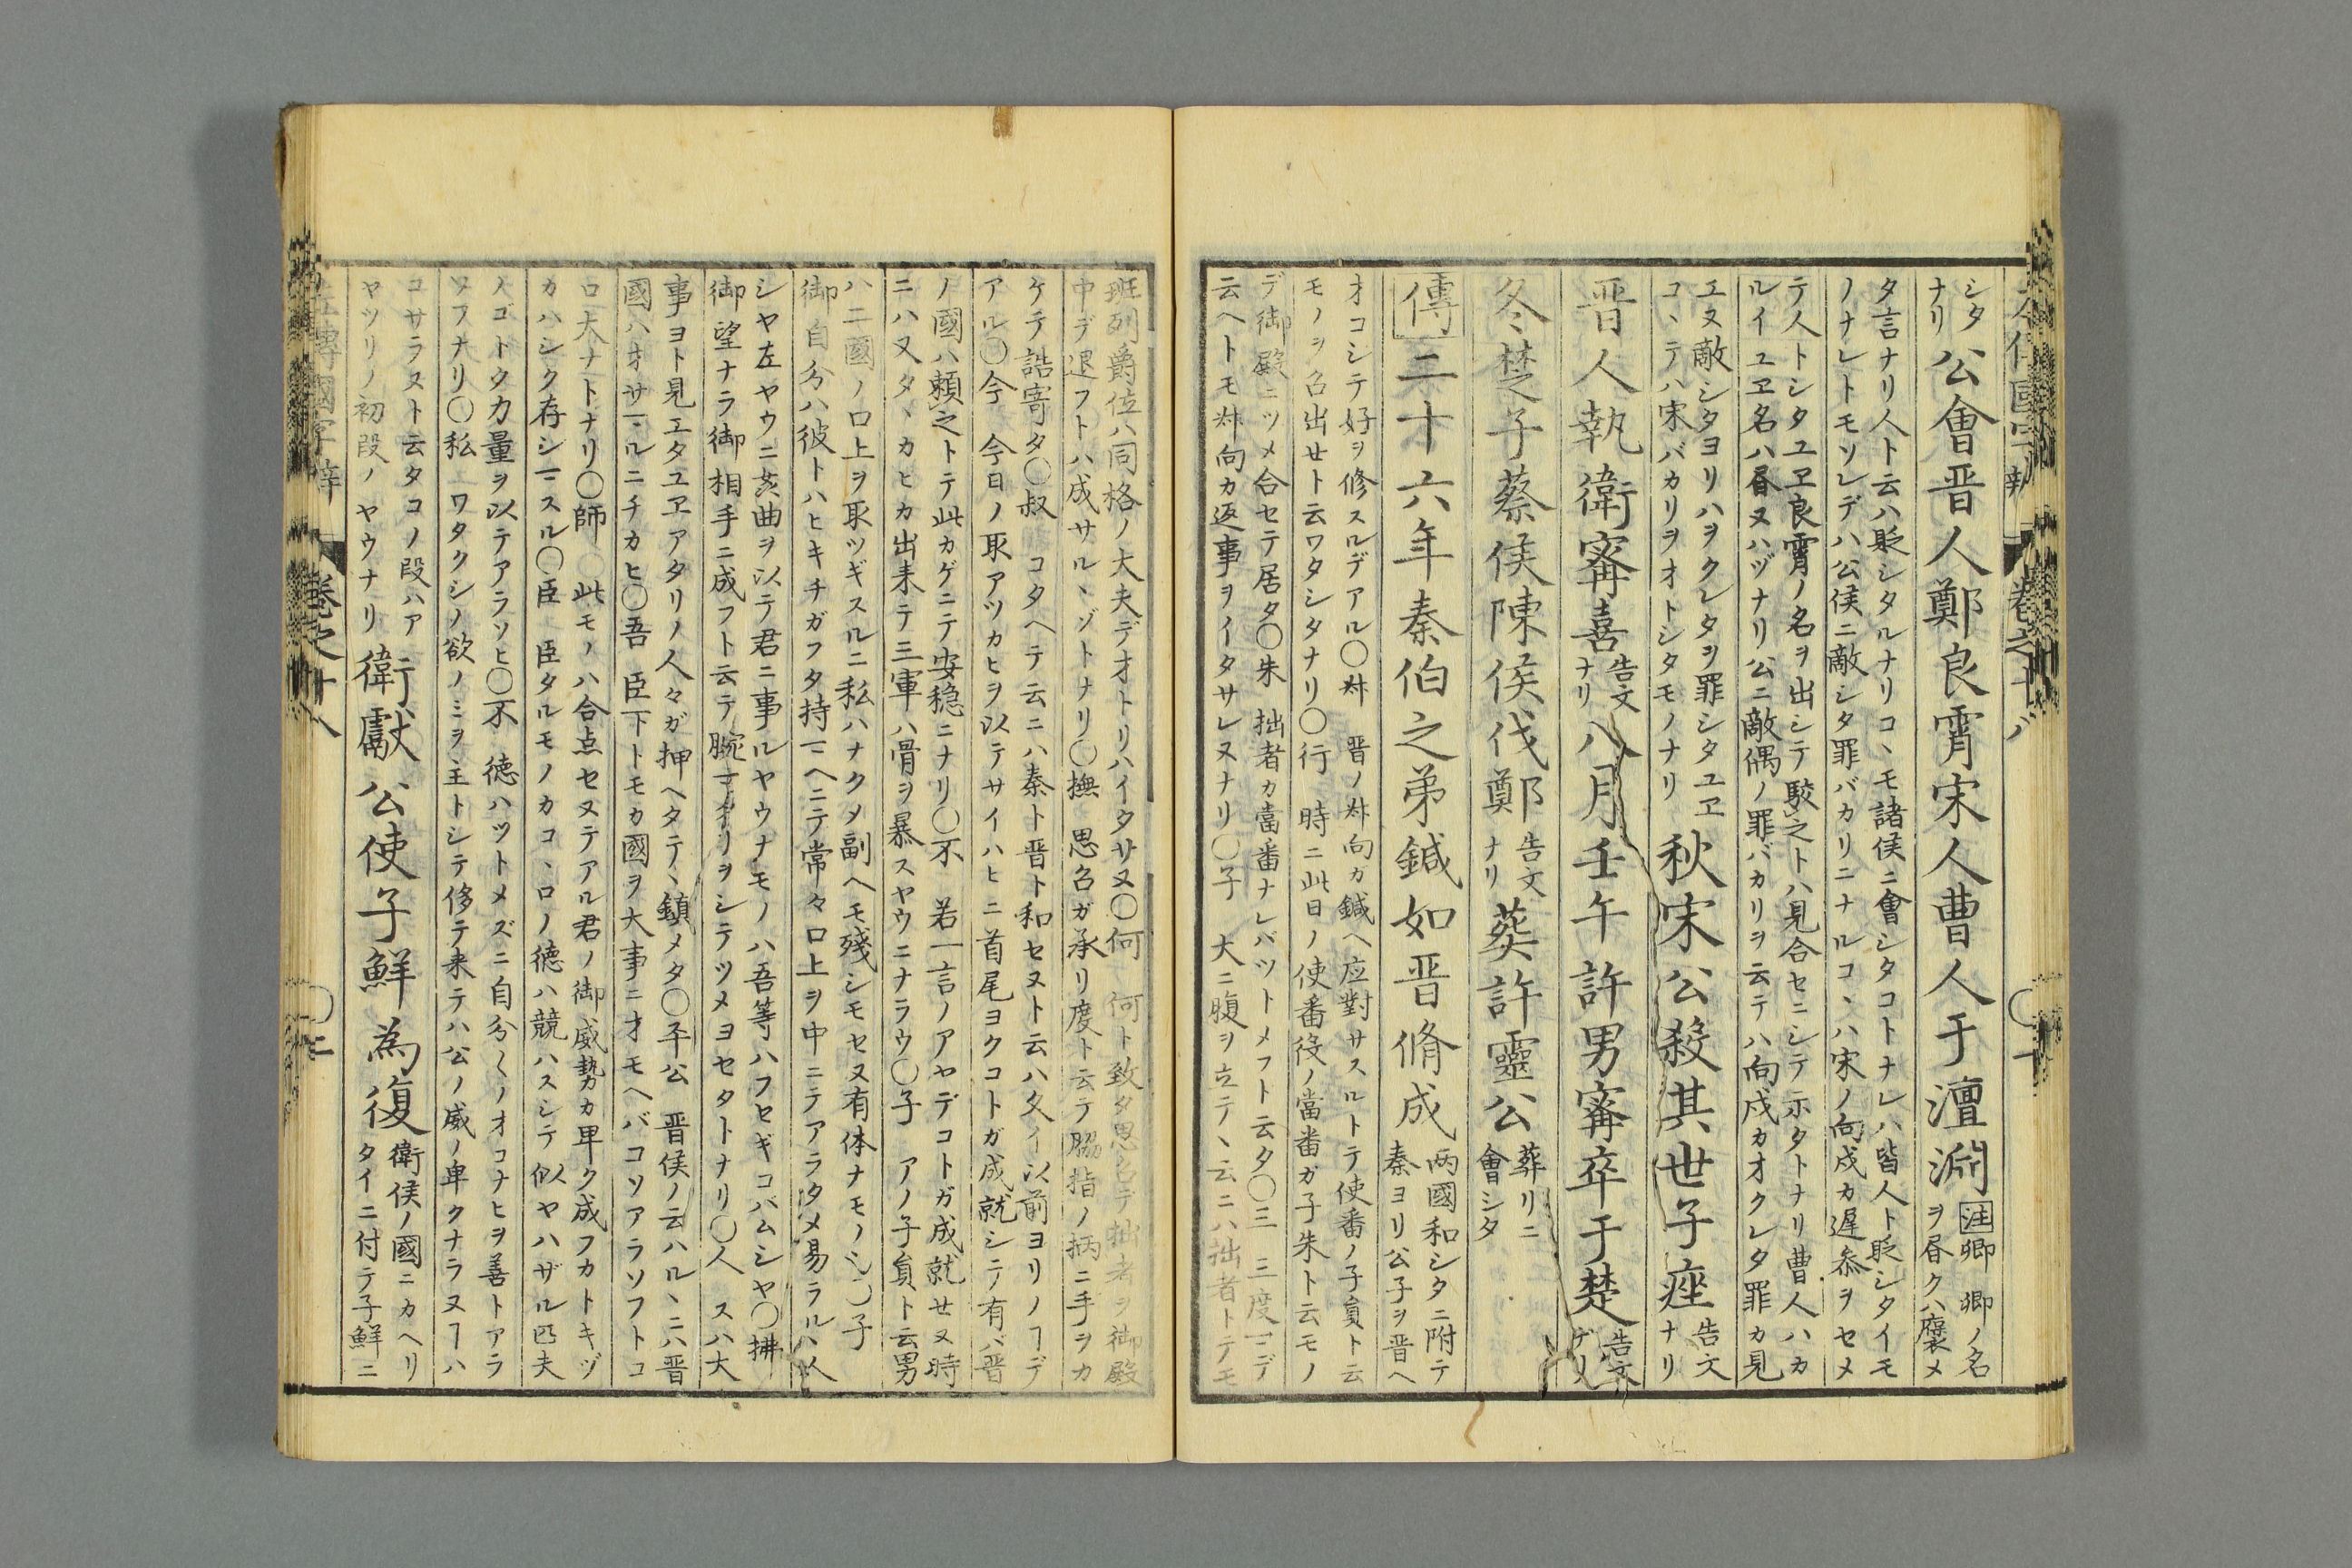 シタ
ナリ
公會晋人鄭良霄宋人曹人于澶淵
注卿 卿ノ名
ヲ昏クハ襃メ
タ言ナリ人ト云ハ貶シタルナリコヽモ諸侯ニ會シタコトナレハ皆人ト貶シタイモ
ノナレトモソレデハ公侯ニ敵シタ罪バカリニナルコヽハ宋ノ向戍カ遅参ヲセメ
テ人トシタユヱ良霄ノ名ヲ出シテ駁之トハ見合セニシテ示タトナリ曹人ハカ
ルイユヱ名ハ昏ヌハヅナリ公ニ敵偶ノ罪バカリヲ云テハ向戍カオクレタ罪カ見
エヌ敵シタヨリハヲクレタヲ罪シタユヱ
コヽテハ宋バカリヲオトシタモノナリ
秋宋公殺其世子痤
告文
ナリ
晋人執衛寗喜
告文
ナリ
八月壬午許男寗卒于楚
冬楚子蔡侯陳侯伐鄭
告文
ナリ
葬許靈公
葬リニ
會シタ
傳二十六年秦伯之弟鍼如晋脩成
両國和シタニ附テ
秦ヨリ公子ヲ晋ヘ
オコシテ好ヲ修スルデアル〇叔 晋ノ叔向カ鍼ヘ应對サスルトテ使番ノ子員ト云
モノヲ召出セト云ワタシタナリ〇行 時ニ此日ノ使番役ノ當番ガ子朱ト云モノ
デ御殿ニツメ合セテ居タ〇朱 拙者カ當番ナレバツトメフト云タ〇三 三度マデ
云ヘトモ叔向カ返事ヲイタサレヌナリ〇子 大ニ腹ヲ立テヽ云ニハ拙者トテモ
班列爵位ハ同格ノ大夫デオトリハイタサヌ〇何 何ト致タ思召デ拙者ヲ御殿
中デ退フトハ成サルヽゾトナリ〇撫 思召ガ承リ度ト云テ脇指ノ柄ニ手ヲカ
ケテ詰寄タ〇叔 コタヘテ云ニハ秦ト晋ト和セヌト云ハ久イ以前ヨリノ⏋デ
アル〇今 今日ノ取アツカヒヲ以テサイハヒニ首尾ヨクコトガ成就シテ有バ晋
ノ國ハ頼之トテ此カゲニテ安穏ニナリ〇不 若一言ノアヤデコトガ成就せヌ時
ニハ又タヽカヒカ出来テ三軍ハ骨ヲ暴スヤウニナラウ〇子 アノ子員ト云男
ハ二國ノ口上ヲ取ツギスルニ私ハナクメ副ヘモ殘シモセヌ有体ナモノ〇子
御自分ハ彼トハヒキチガフタ持マヘニテ常々口上ヲ中ニテアラタメ易ラルヽ人
シヤ左ヤウニ姦曲ヲ以テ君ニ事ルヤウナモノハ吾等ハフセギコバムシヤ〇拂
御望ナラ御相手ニ成フト云テ腕マクリヲシテツメヨセタトナリ〇人 スハ大
事ヨト見エタユヱアタリノ人々ガ押ヘタテヽ鎮メタ〇平公 晋侯ノ云ハルヽニハ晋
國ハオサマルニチカヒ〇吾 臣下トモカ國ヲ大事ニオモヘバコソアラソフトコ
ロ大ナトナリ〇師 此モノハ合点セヌテアル君ノ御威勢カ卑ク成フカトキヅ
カハシク存シマスル〇臣 臣タルモノカコヽロノ徳ハ競ハスシテ似ヤハザル匹夫
ノゴトク力量ヲ以テアラソヒ〇不 徳ハツトメズニ自分〱ノオコナヒヲ善トアラ
ソフナリ〇私 ワタクシノ欲ノミヲ主トシテ侈テ来テハ公ノ威ノ卑クナラヌ⏋ハ
コサラヌト云タコノ段ハア
ヤツリノ初段ノヤウナリ
衛獻公使子鮮為復
衛侯ノ國ニカヘリ
タイニ付テ子鮮ニ